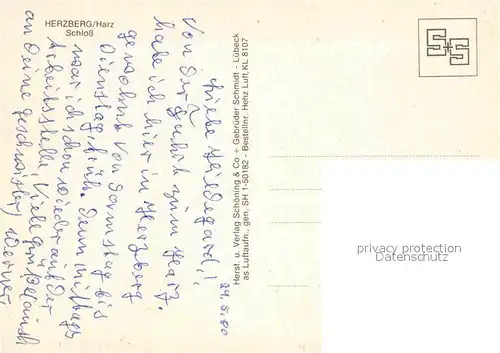 HERZBERG/Harz
Schloß
24.5.80
Liebe Hildegard!!
Von der Fahrt zum Harz.
habe ich hier in Herzberg
gewohnt von Samstag bis
Dienstag früh. Denn mittags
war ich schon wieder auf der
Arbeitsstelle. Viele Grüße auch
an deine geschwister, Werner.
Herst. u. Verlag Schöning & Co + Gebrüder Schmidt - Lübeck
as Luftaufn., gen. SH 1-50182 - Bestellnr. Hehz Luft KL 8107
S+S
privacy protection
Ansichtskartenversand
.com